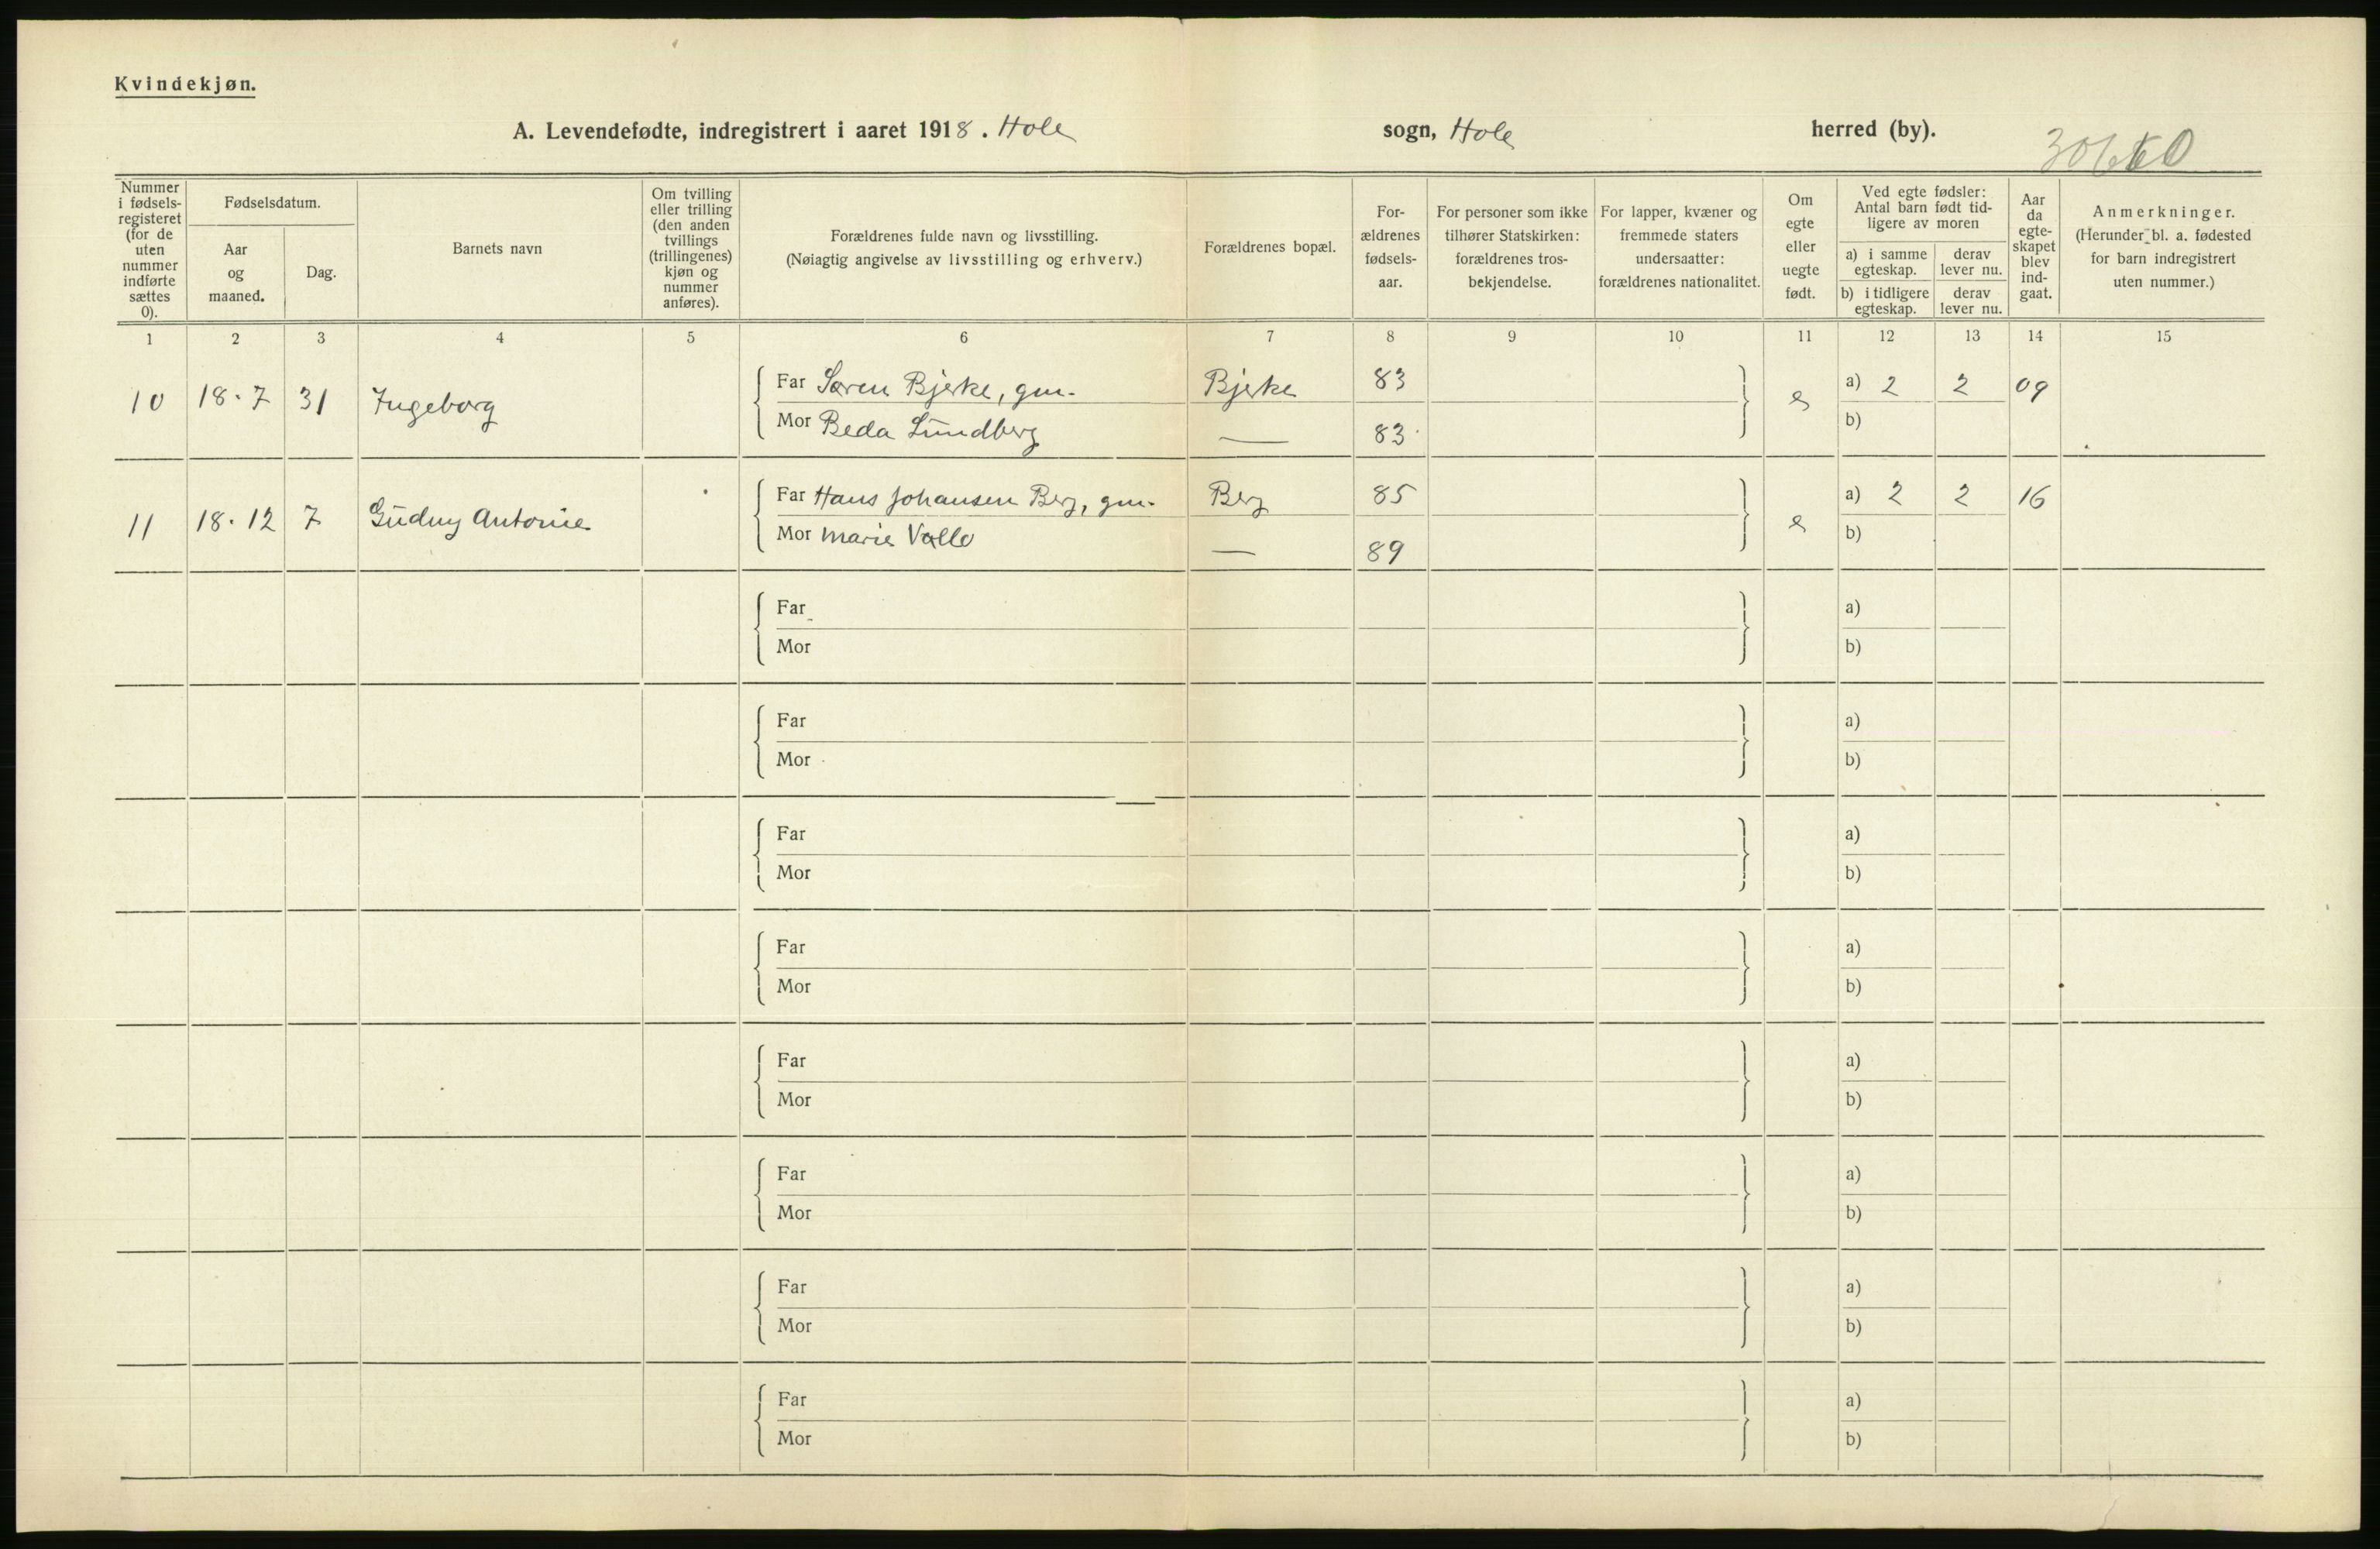 Kvindekjøn.
A. Levendefødte, indregistrert i aaret 1918. Hole sogn, Hole herred (by).
Nummer i fødsels-registeret (for de uten nummer indførte sættes 0).
Fødselsdatum.
Aar og maaned.
Dag.
Barnets navn
Om tvilling eller trilling (den anden tvillings (trillingenes) kjøn og nummer anføres).
Forældrenes fulde navn og livsstilling.
(Nøiagtig angivelse av livsstilling og erhverv.)
Forældrenes bopæl.
For-ældrenes fødsels-aar.
For personer som ikke tilhører Statskirken: forældrenes tros-bekjendelse.
For lapper, kvæner og fremmede staters undersaatter: forældrenes nationalitet.
Om egte eller uegte født.
Ved egte fødsler: Antal barn født tid-ligere av moren
a) i samme egteskap.
derav lever nu.
b) i tidligere egteskap.
derav lever nu.
Aar da egte-skapet blev ind-gaat.
Anmerkninger.
(Herunder bl. a. fødested for barn indregistrert uten nummer.)
1 2 3 4 5 6 7 8 9 10 11 12 13 14 15
10 18.7 31 Ingeborg Far Søren Bjerke, gm. Bjerke 83 e a) 2 2 09
Mor Beda Lundberg — 83 b)
11 18.12 7 Gudny Antonie Far Hans Johansen Berg, gm. Berg 85 e a) 2 2 16
Mor Marie Valle — 89 b)
Far a)
Mor b)
Far a)
Mor b)
Far a)
Mor b)
Far a)
Mor b)
Far a)
Mor b)
Far a)
Mor b)
Far a)
Mor b)
Far a)
Mor b)